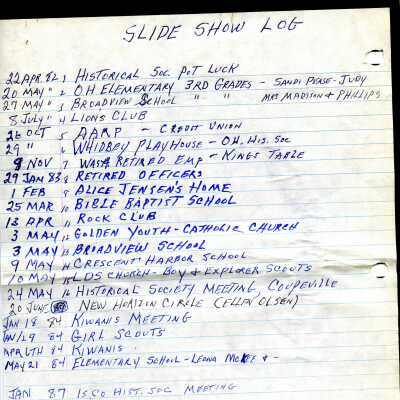 SLIDE SHOW LOG
22 APR 82 1 HISTORICAL SOC POT LUCK
20 MAY " 2 OH ELEMENTARY 3RD GRADES - SANDI PEASE - JUDY
27 MAY " 3 BROADVIEW SCHOOL " " MRS MADISON & PHILLIPS
8 July " 4 LIONS CLUB
26 OCT 5 AARP - CREDIT UNION
29 " 6 WHIDBEY PLAYHOUSE - OH. HIS. SOC
9 NOV 7 WASH RETIRED EMP - KINGS TABLE
29 JAN 83 8 RETIRED OFFICERS
1 FEB 9 ALICE JENSEN'S HOME
25 MAR 10 BIBLE BAPTIST SCHOOL
13 APR 11 ROCK CLUB
3 MAY 12 GOLDEN YOUTH - CATHOLIC CHURCH
3 MAY 13 BROADVIEW SCHOOL
9 MAY 14 CRESCENT HARBOR SCHOOL
10 MAY 15 LDS CHURCH - BOY & EXPLORER SCOUTS
24 MAY 16 HISTORICAL SOCIETY MEETING, COUPEVILLE
20 JUNE NEW HORIZON CIRCLE (ELLEN OLSEN)
JAN 18 84 KIWANIS MEETING
JAN 29 84 GIRL SCOUTS
APR 4TH 84 KIWANIS
MAY 21 84 ELEMENTARY SCHOOL - LEONA
JAN 87 IS. CO. HIST. SOC MEETING